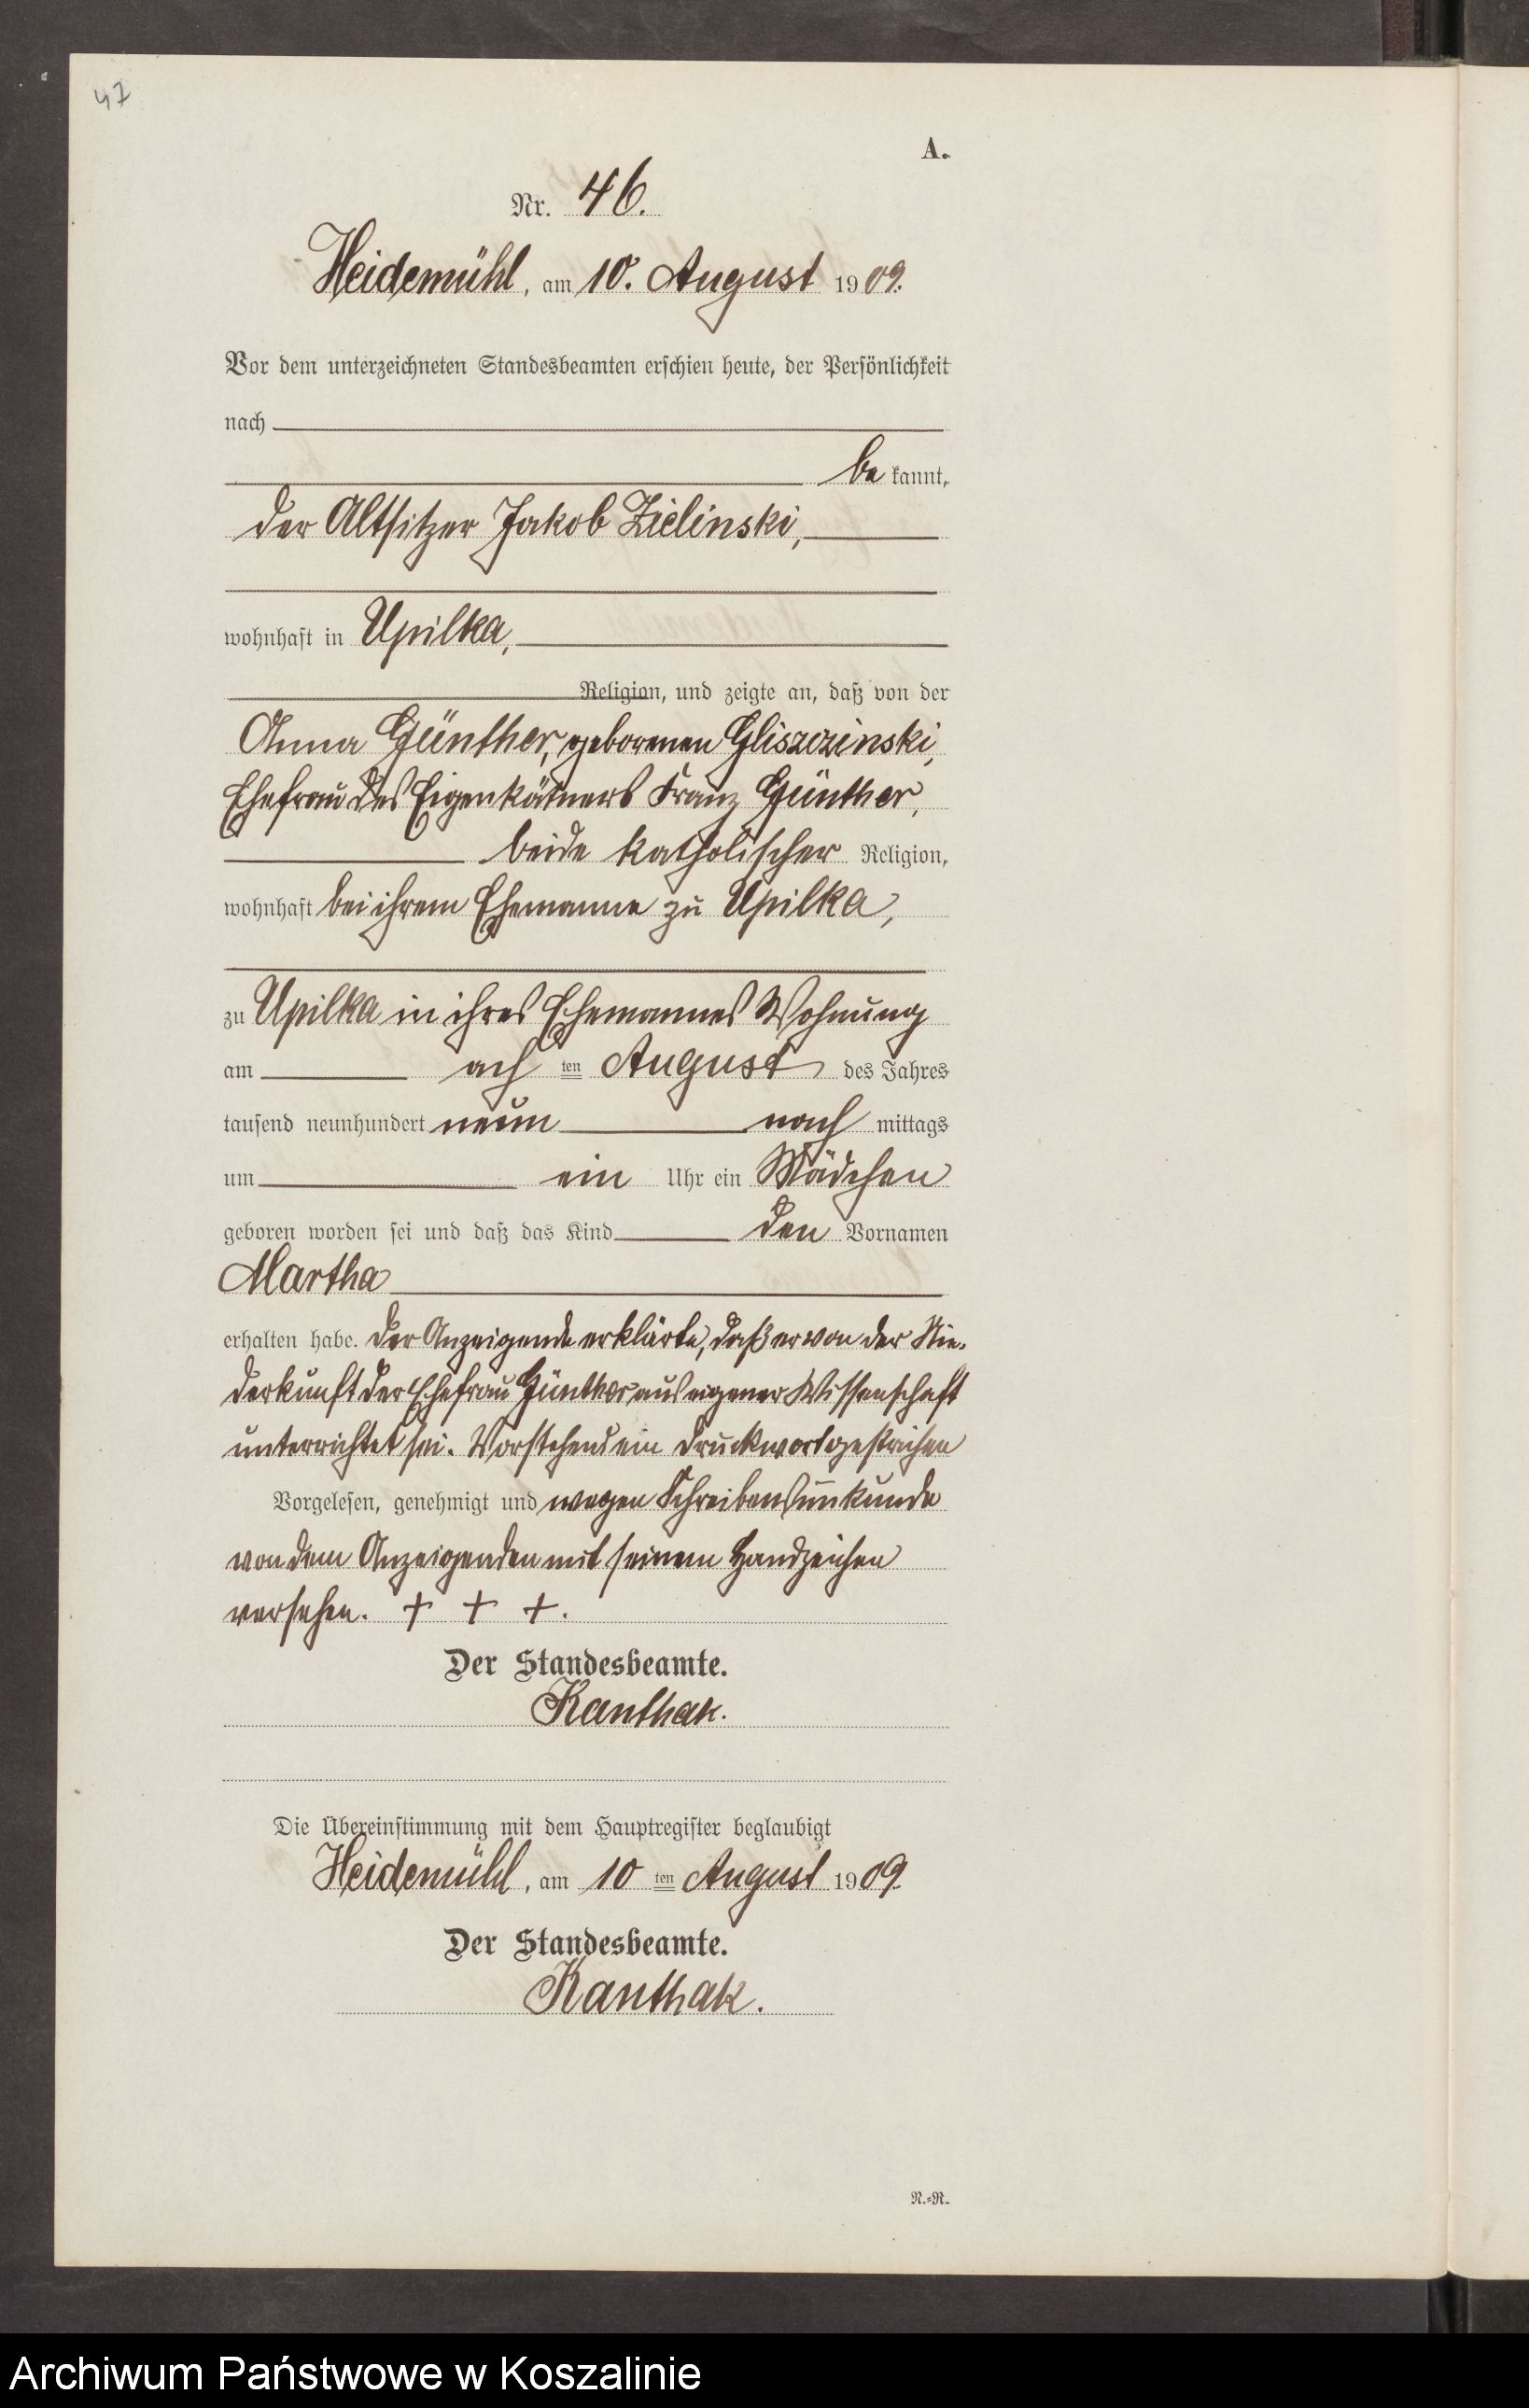 47
A.
Nr. 46.
Heidemühl, am 10. August 1909.
Vor dem unterzeichneten Standesbeamten erschien heute, der Persönlichkeit
nach
be kannt,
der Altsitzer Jakob Zielinski,
wohnhaft in Upilka,
Religion, und zeigte an, daß von der
Anna Günther, geborenen Gliszczinski,
Ehefrau des Eigenkätners Franz Günther,
beide katholischer Religion,
wohnhaft bei ihrem Ehemanne zu Upilka,
zu Upilka in ihres Ehemannes Wohnung
am ach ten August des Jahres
tausend neunhundert neun nach mittags
um ein Uhr ein Mädchen
geboren worden sei und daß das Kind den Vornamen
Martha
erhalten habe. Der Anzeigende erklärte, daß er von der Nie-
derkunft der Ehefrau Günther aus eigener Wissenschaft
unterrichtet sei. Vorstehend ein Druckwort gestrichen
Vorgelesen, genehmigt und wegen Schreibensunkunde
von dem Anzeigenden mit seinem Handzeichen
versehen. + + +.
Der Standesbeamte.
Kanthak.
Die Übereinstimmung mit dem Hauptregister beglaubigt
Heidemühl, am 10 ten August 1909.
Der Standesbeamte.
Kanthak.
N.-R.
Archiwum Państwowe w Koszalinie